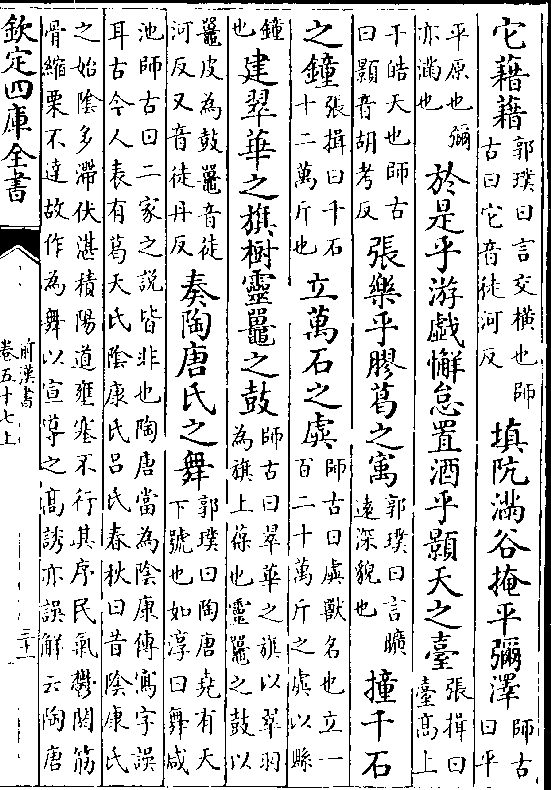 它藉藉郭璞曰言交橫也師古曰它音徒河反填阬滿谷掩平彌澤師古曰平
平原也彌亦滿也於是乎游戲懈怠置酒乎顥天之臺張揖曰臺髙上
干皓天也師古曰顥音胡考反張樂乎膠葛之㝢郭璞曰言曠遠深貌也撞千石
之鐘張揖曰千石十二萬斤也立萬石之虡師古曰虡獸名也立一百二十萬斤之虡以縣
鐘也建翠華之旗樹靈鼉之鼓師古曰翠華之旗以翠羽為旗上葆也靈鼉之鼓以
鼉皮為鼓鼉音徒河反又音徒丹反奏陶唐氏之舞郭璞曰陶唐堯有天下號也如淳曰舞咸
池師古曰二家之說皆非也陶唐當為陰康傳寫字誤
耳古今人表有葛天氏陰康氏呂氏春秋曰昔陰康氏
之始陰多滯伏湛積陽道壅塞不行其序民氣鬱閼筋
骨縮栗不達故作為舞以宣導之髙誘亦誤解云陶唐
欽定四庫全書
前漢書
卷五十七上